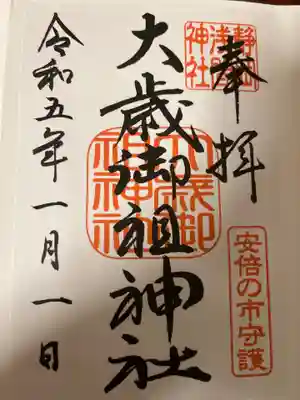 奉拝
静岡
浅間
神社
安倍の市守護
大歳御祖神社
大歳御
祖神社
令和五年一月一日